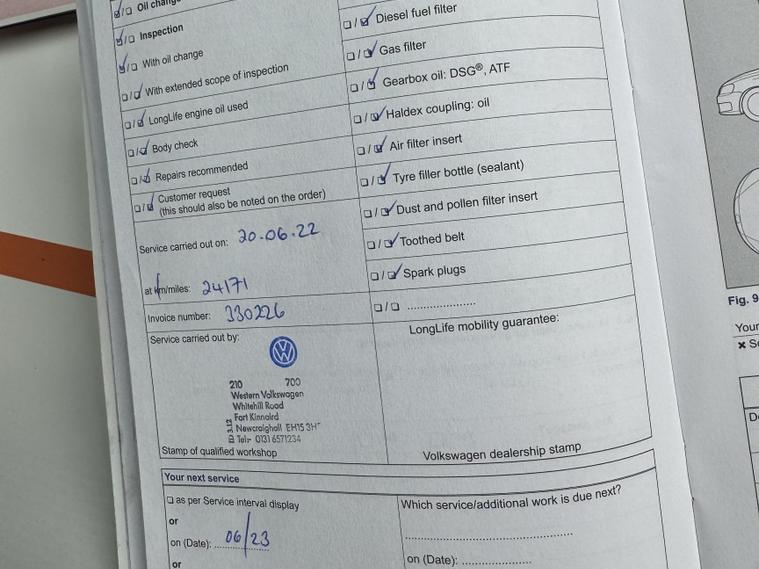 ☑/☐ Oil change
☑/☐ Inspection
☑/☐ With oil change
☐/☑ With extended scope of inspection
☐/☑ LongLife engine oil used
☐/☑ Body check
☐/☑ Repairs recommended
☐/☑ Customer request
(this should also be noted on the order)
Service carried out on: 20.06.22
at km/miles: 24171
Invoice number: 330226
Service carried out by:
210 700
Western Volkswagen
Whitehill Road
Fort Kinnaird
Newcraighall EH15 3H
Tel:- 0131 6571234
Stamp of qualified workshop
☐/☑ Diesel fuel filter
☐/☑ Gas filter
☐/☑ Gearbox oil: DSG®, ATF
☐/☑ Haldex coupling: oil
☐/☑ Air filter insert
☐/☑ Tyre filler bottle (sealant)
☐/☑ Dust and pollen filter insert
☐/☑ Toothed belt
☐/☑ Spark plugs
☐/☐ ....................
LongLife mobility guarantee:
Volkswagen dealership stamp
Your next service
☐ as per Service interval display
or
on (Date): 06/23
or
Which service/additional work is due next?
on (Date): ....................
Fig. 9
Your